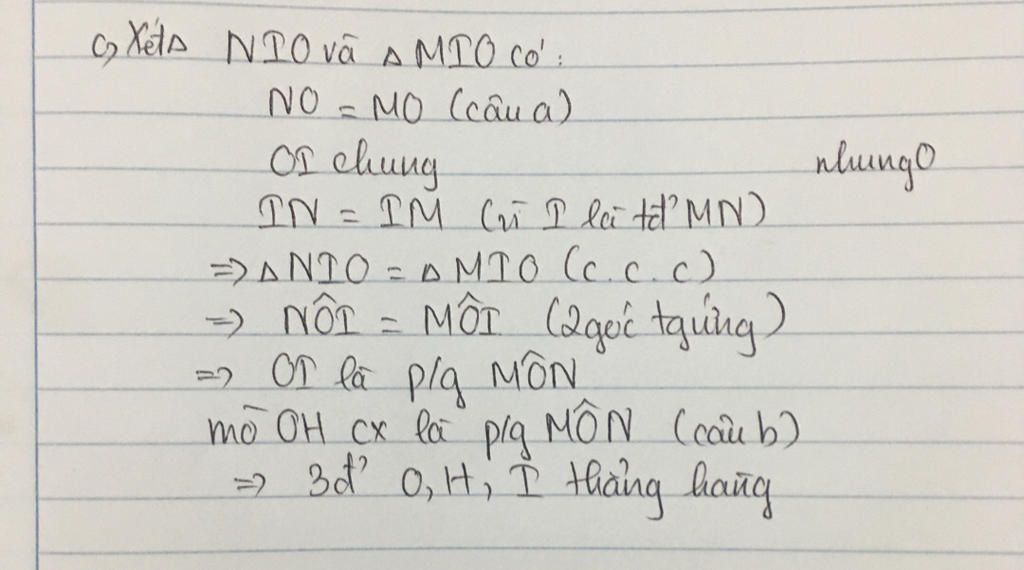 c, Xét Δ NIO và Δ MIO có:
NO = MO (câu a)
OI chung
nhungO
IN = IM (vì I là tđ' MN)
=> Δ NIO = Δ MIO (c.c.c)
=> NÔI = MÔI (2 góc tg ứng)
=> OI là p/g MÔN
mà OH cx là p/g MÔN (câu b)
=> 3đ' O, H, I thẳng hàng